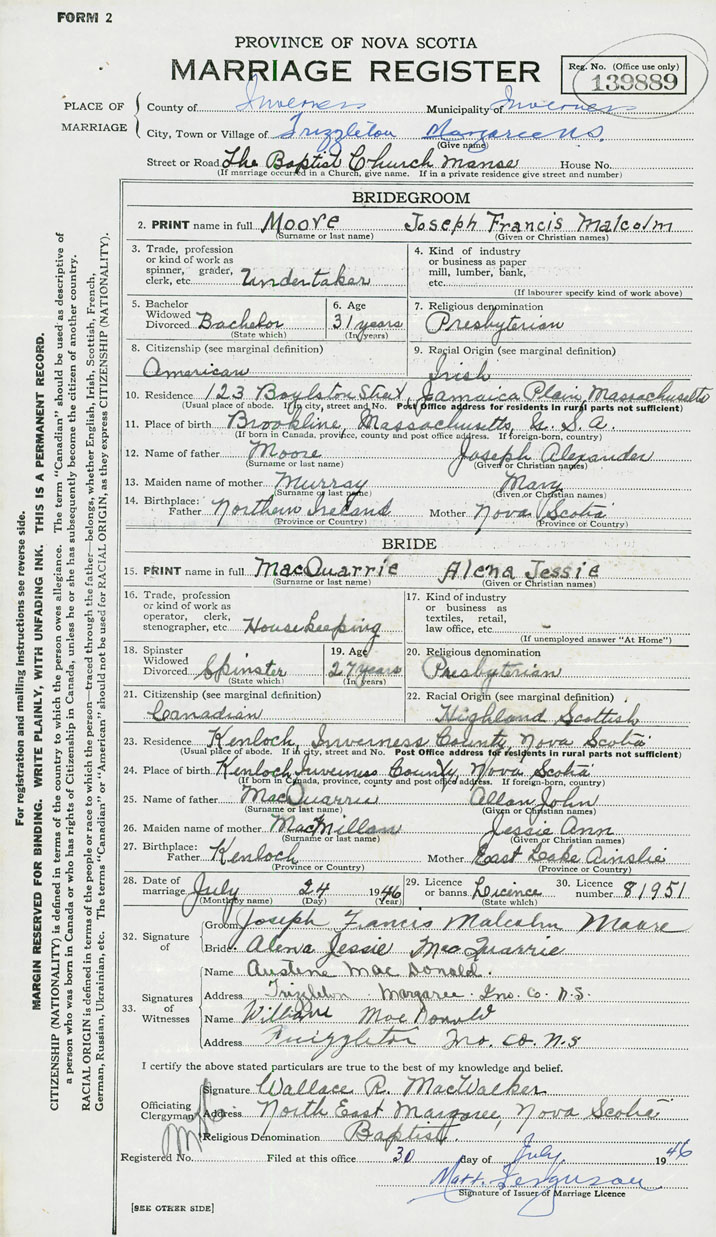 FORM 2
PROVINCE OF NOVA SCOTIA
MARRIAGE REGISTER
Reg. No. (Office use only)
139889
PLACE OF MARRIAGE
County of Inverness Municipality of Inverness
City, Town or Village of Frizzleton Margaree N.S.
(Give name)
Street or Road The Baptist Church Manse House No.
(If marriage occurred in a Church, give name. If in a private residence give street and number)
BRIDEGROOM
2. PRINT name in full Moore Joseph Francis Malcolm
(Surname or last name) (Given or Christian names)
3. Trade, profession
or kind of work as
spinner, grader,
clerk, etc. Undertaker
4. Kind of industry
or business as paper
mill, lumber, bank,
etc.
(If labourer specify kind of work above)
5. Bachelor
Widowed
Divorced Bachelor
(State which)
6. Age
31 years
(In years)
7. Religious denomination
Presbyterian
8. Citizenship (see marginal definition)
American
9. Racial Origin (see marginal definition)
Irish
10. Residence 123 Boylston Street, Jamaica Plain, Massachusetts
(Usual place of abode. If in city, street and No. Post Office address for residents in rural parts not sufficient)
11. Place of birth Brookline, Massachusetts, U. S. A.
(If born in Canada, province, county and post office address. If foreign-born, country)
12. Name of father Moore Joseph Alexander
(Surname or last name) (Given or Christian names)
13. Maiden name of mother Murray Mary
(Surname or last name) (Given or Christian names)
14. Birthplace:
Father Northern Ireland Mother Nova Scotia
(Province or Country) (Province or Country)
BRIDE
15. PRINT name in full MacQuarrie Alena Jessie
(Surname or last name) (Given or Christian names)
16. Trade, profession
or kind of work as
operator, clerk,
stenographer, etc. Housekeeping
17. Kind of industry
or business as
textiles, retail,
law office, etc.
(If unemployed answer "At Home")
18. Spinster
Widowed
Divorced Spinster
(State which)
19. Age
27 years
(In years)
20. Religious denomination
Presbyterian
21. Citizenship (see marginal definition)
Canadian
22. Racial Origin (see marginal definition)
Highland Scottish
23. Residence Kenloch, Inverness County, Nova Scotia
(Usual place of abode. If in city, street and No. Post Office address for residents in rural parts not sufficient)
24. Place of birth Kenloch, Inverness County, Nova Scotia
(If born in Canada, province, county and post office address. If foreign-born, country)
25. Name of father MacQuarrie Allan John
(Surname or last name) (Given or Christian names)
26. Maiden name of mother MacMillan Jessie Ann
(Surname or last name) (Given or Christian names)
27. Birthplace:
Father Kenloch Mother East Lake Ainslie
(Province or Country) (Province or Country)
28. Date of
marriage July 24 1946
(Month by name) (Day) (Year)
29. Licence
or banns. Licence
(State which)
30. Licence
number 81951
32. Signature of
Groom Joseph Francis Malcolm Moore
Bride Alena Jessie MacQuarrie
33. Signatures of Witnesses
Name Austene MacDonald.
Address Frizzleton Margaree Inv. Co. N.S.
Name William MacDonald
Address Frizzleton Inv. Co. N.S
I certify the above stated particulars are true to the best of my knowledge and belief.
Officiating Clergyman
Signature Wallace R. MacWalker
Address North East Margaree, Nova Scotia
Religious Denomination Baptist.
Registered No. Filed at this office 30 day of July 1946
Matt. Ferguson
Signature of Issuer of Marriage Licence
[SEE OTHER SIDE]
For registration and mailing instructions see reverse side.
MARGIN RESERVED FOR BINDING. WRITE PLAINLY, WITH UNFADING INK. THIS IS A PERMANENT RECORD.
CITIZENSHIP (NATIONALITY) is defined in terms of the country to which the person owes allegiance. The term "Canadian" should be used as descriptive of
a person who was born in Canada or who has rights of Citizenship in Canada, unless he or she has subsequently become the citizen of another country.
RACIAL ORIGIN is defined in terms of the people or race to which the person—traced through the father—belongs, whether English, Irish, Scottish, French,
German, Russian, Ukrainian, etc. The terms "Canadian" or "American" should not be used for RACIAL ORIGIN, as they express CITIZENSHIP (NATIONALITY).